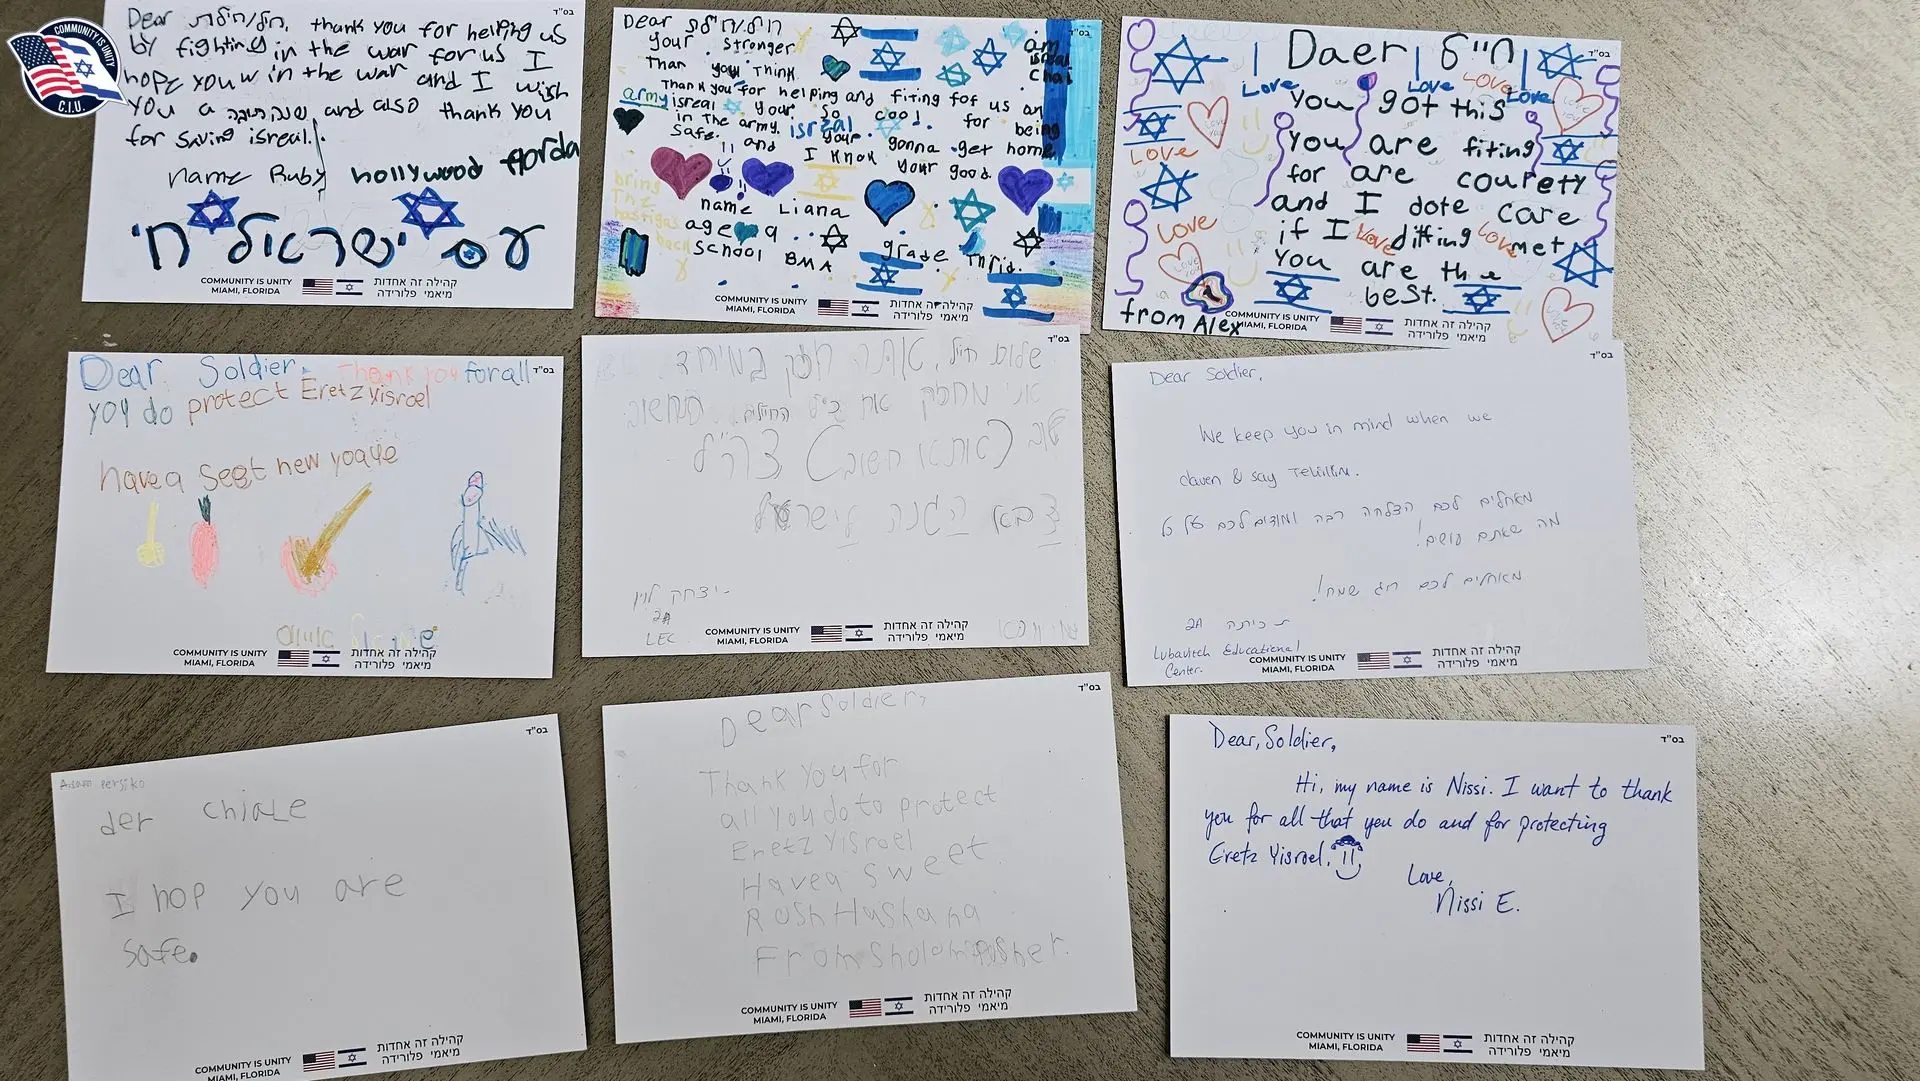 COMMUNITY IS UNITY
C.I.U.
בס"ד
Dear חייל/חיילת, thank you for helping us
by fighting in the war for us I
hope you win the war and I wish
you a שנה טובה and also thank you
for saving isreal.
name Ruby hollywood florda
עם ישראל חי
COMMUNITY IS UNITY
MIAMI, FLORIDA
קהילה זה אחדות
מיאמי פלורידה
בס"ד
Dear חייל/חיילת
your stronger
Than you Think
am
isreal
chai
Thank you for helping and fiting for us an
army isreal your so cool. for being
in the army. isreal your gonna get home
safe. and I know your good.
bring
The
hastigas
back
name Liana
age 9
school BMA
grade Thrid.
COMMUNITY IS UNITY
MIAMI, FLORIDA
קהילה זה אחדות
מיאמי פלורידה
בס"ד
Daer חייל
Love Love Love Love
You got this
You are fiting
Love
for are courety
and I dote care
Love
if I Love diting Love met
You are the
best.
from Alex
COMMUNITY IS UNITY
MIAMI, FLORIDA
קהילה זה אחדות
מיאמי פלורידה
בס"ד
Dear Soldier. Thank you for all
you do protect Eretz Yisroel
have a seet new
COMMUNITY IS UNITY
MIAMI, FLORIDA
קהילה זה אחדות
מיאמי פלורידה
בס"ד
שלום חייל, אתה חזק במיוחד.
אני מחזק את כל החיילים.
צה"ל
צבא הגנה לישראל
- יצחק לוין
2A
LEC
COMMUNITY IS UNITY
MIAMI, FLORIDA
קהילה זה אחדות
מיאמי פלורידה
בס"ד
Dear Soldier,
We keep you in mind when we
daven & say Tehillim.
מאחלים לכם הצלחה רבה ומודים לכם על כל
מה שאתם עושים!
מאחלים לכם חג שמח!
כיתה 2A
Lubavitch Educational
Center.
COMMUNITY IS UNITY
MIAMI, FLORIDA
קהילה זה אחדות
מיאמי פלורידה
בס"ד
Adam Persiko
der chiale
I hop you are
safe.
COMMUNITY IS UNITY
MIAMI, FLORIDA
קהילה זה אחדות
מיאמי פלורידה
בס"ד
Dear Soldier,
Thank you for
all you do to protect
Eretz Yisroel
Have a sweet
Rosh Hashana
From Sholom
COMMUNITY IS UNITY
MIAMI, FLORIDA
קהילה זה אחדות
מיאמי פלורידה
בס"ד
Dear, Soldier,
Hi, my name is Nissi. I want to thank
you for all that you do and for protecting
Eretz Yisroel.
Love,
Nissi E.
COMMUNITY IS UNITY
MIAMI, FLORIDA
קהילה זה אחדות
מיאמי פלורידה